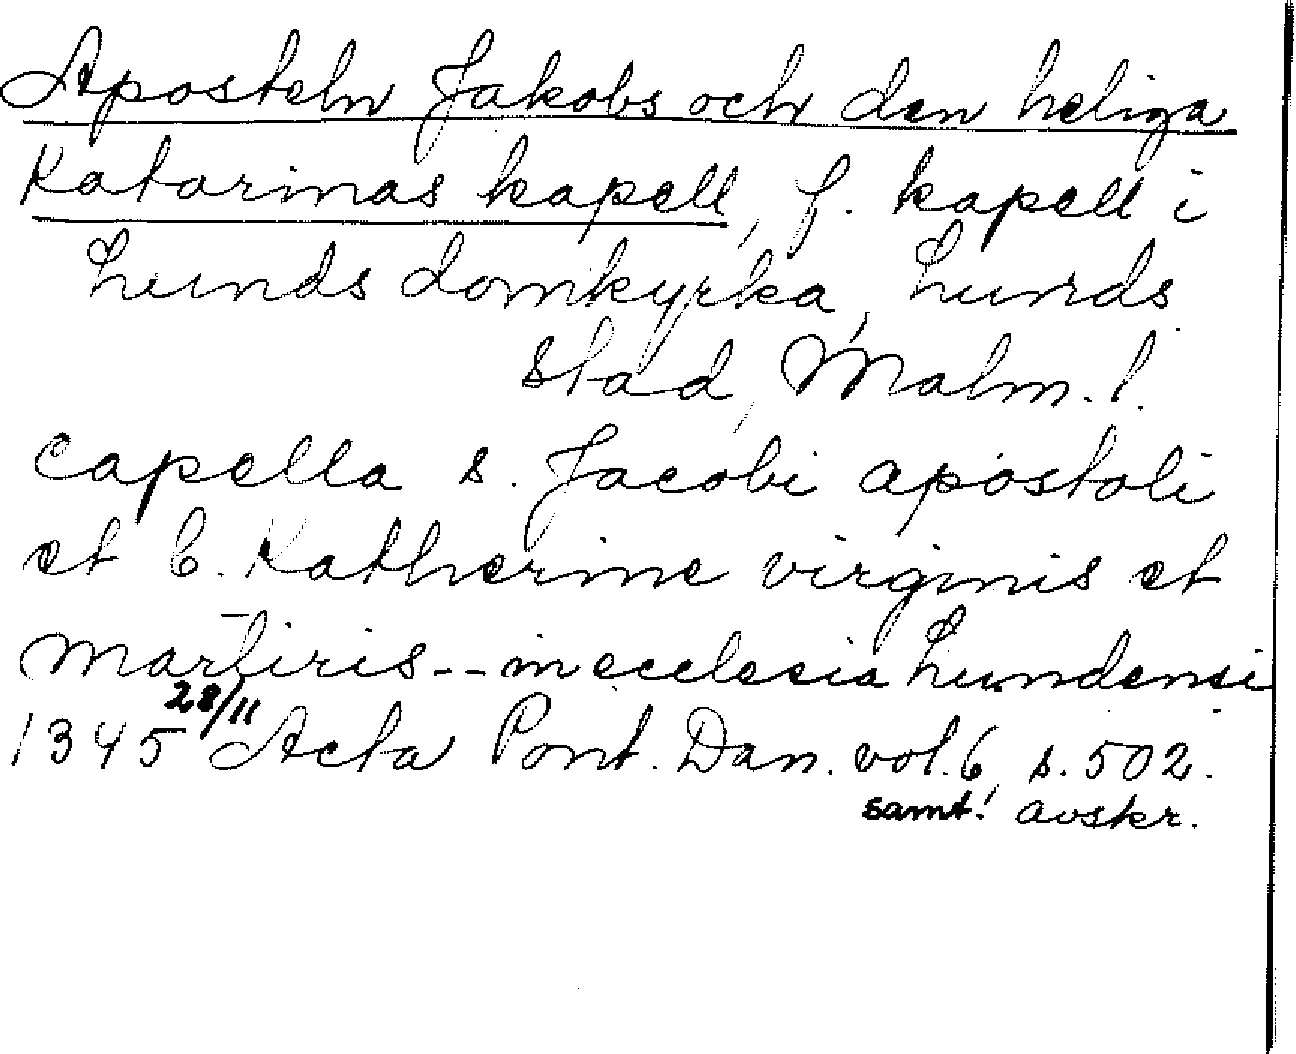 Aposteln Jakobs och den heliga
Katarinas kapell, f. kapell i
Lunds domkyrka, Lunds
stad, Malm. l.
capella s. Jacobi apostoli
et b. Katherine virginis et
martiris -- in ecclesia Lundensi
1345 28/11 Acta Pont. Dan. vol. 6, s. 502.
samt. avskr.